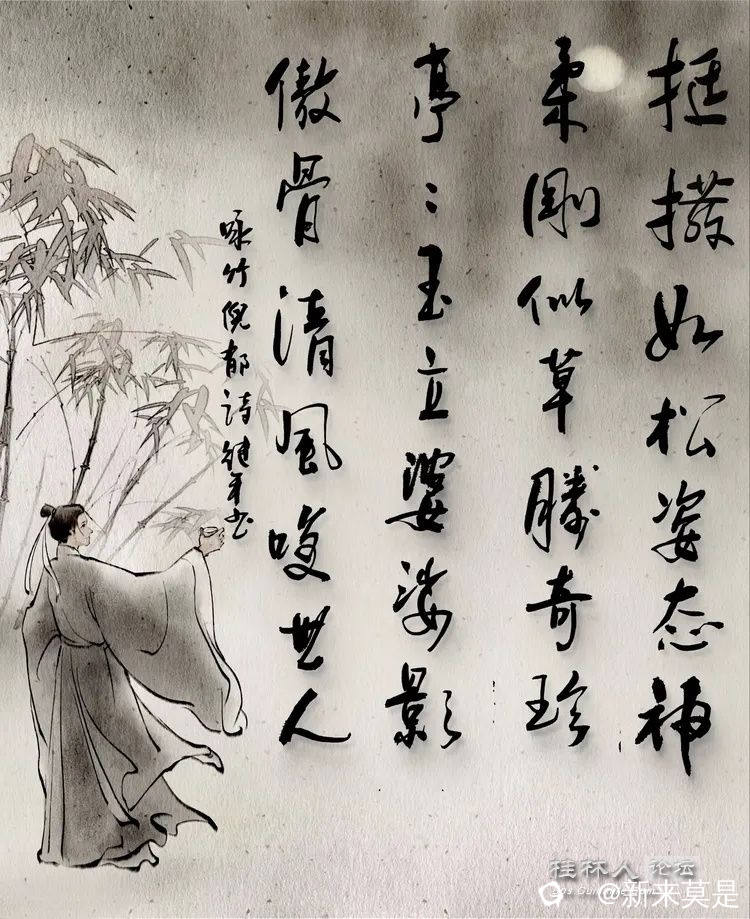 挺拨如松姿态神
柔刚似草勝奇珍
亭〻玉立婆娑影
傲骨清风唤世人
咏竹倪郁诗继平书
桂林人论坛
@新来莫是